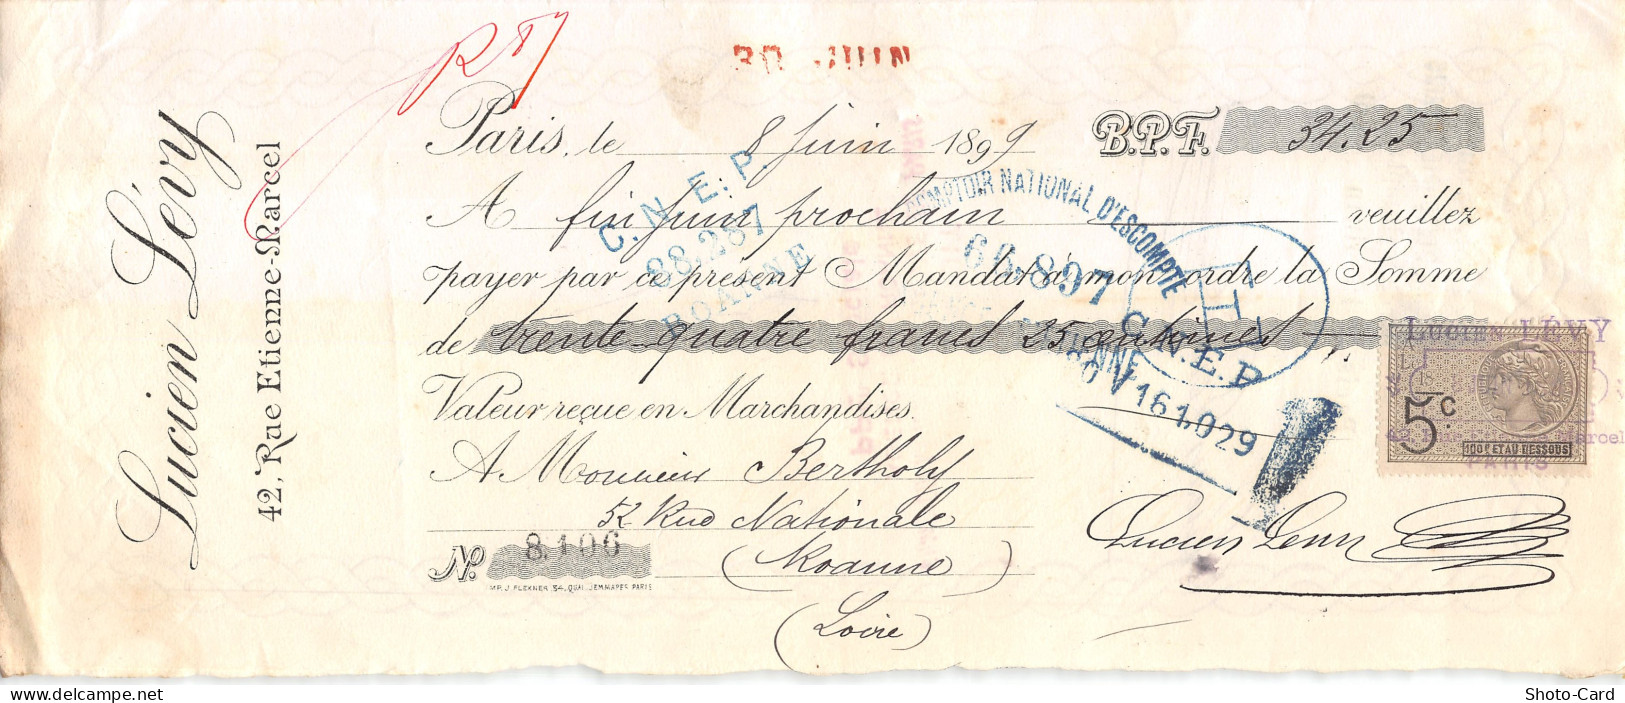 Lucien Lévy
42, Rue Etienne-Marcel
30 JUIN
Paris, le 8 Juin 1899 B.P.F. 34.25
A fin Juin prochain veuillez
payer par ce présent Mandat à mon ordre la Somme
de trente quatre francs 25 centimes
Valeur reçue en Marchandises.
A Monsieur Bertholy
52 Rue Nationale
(Roanne)
(Loire)
No. 8.106
IMP. J. FLEKNER 34, QUAI JEMMAPES PARIS
C.N.E.P.
88.287
ROANNE
COMPTOIR NATIONAL D'ESCOMPTE
60.897
C.N.E.P
161.029
Lucien LÉVY
5c
100F ET AU DESSOUS
PARIS
Lucien Levy
Shoto-Card